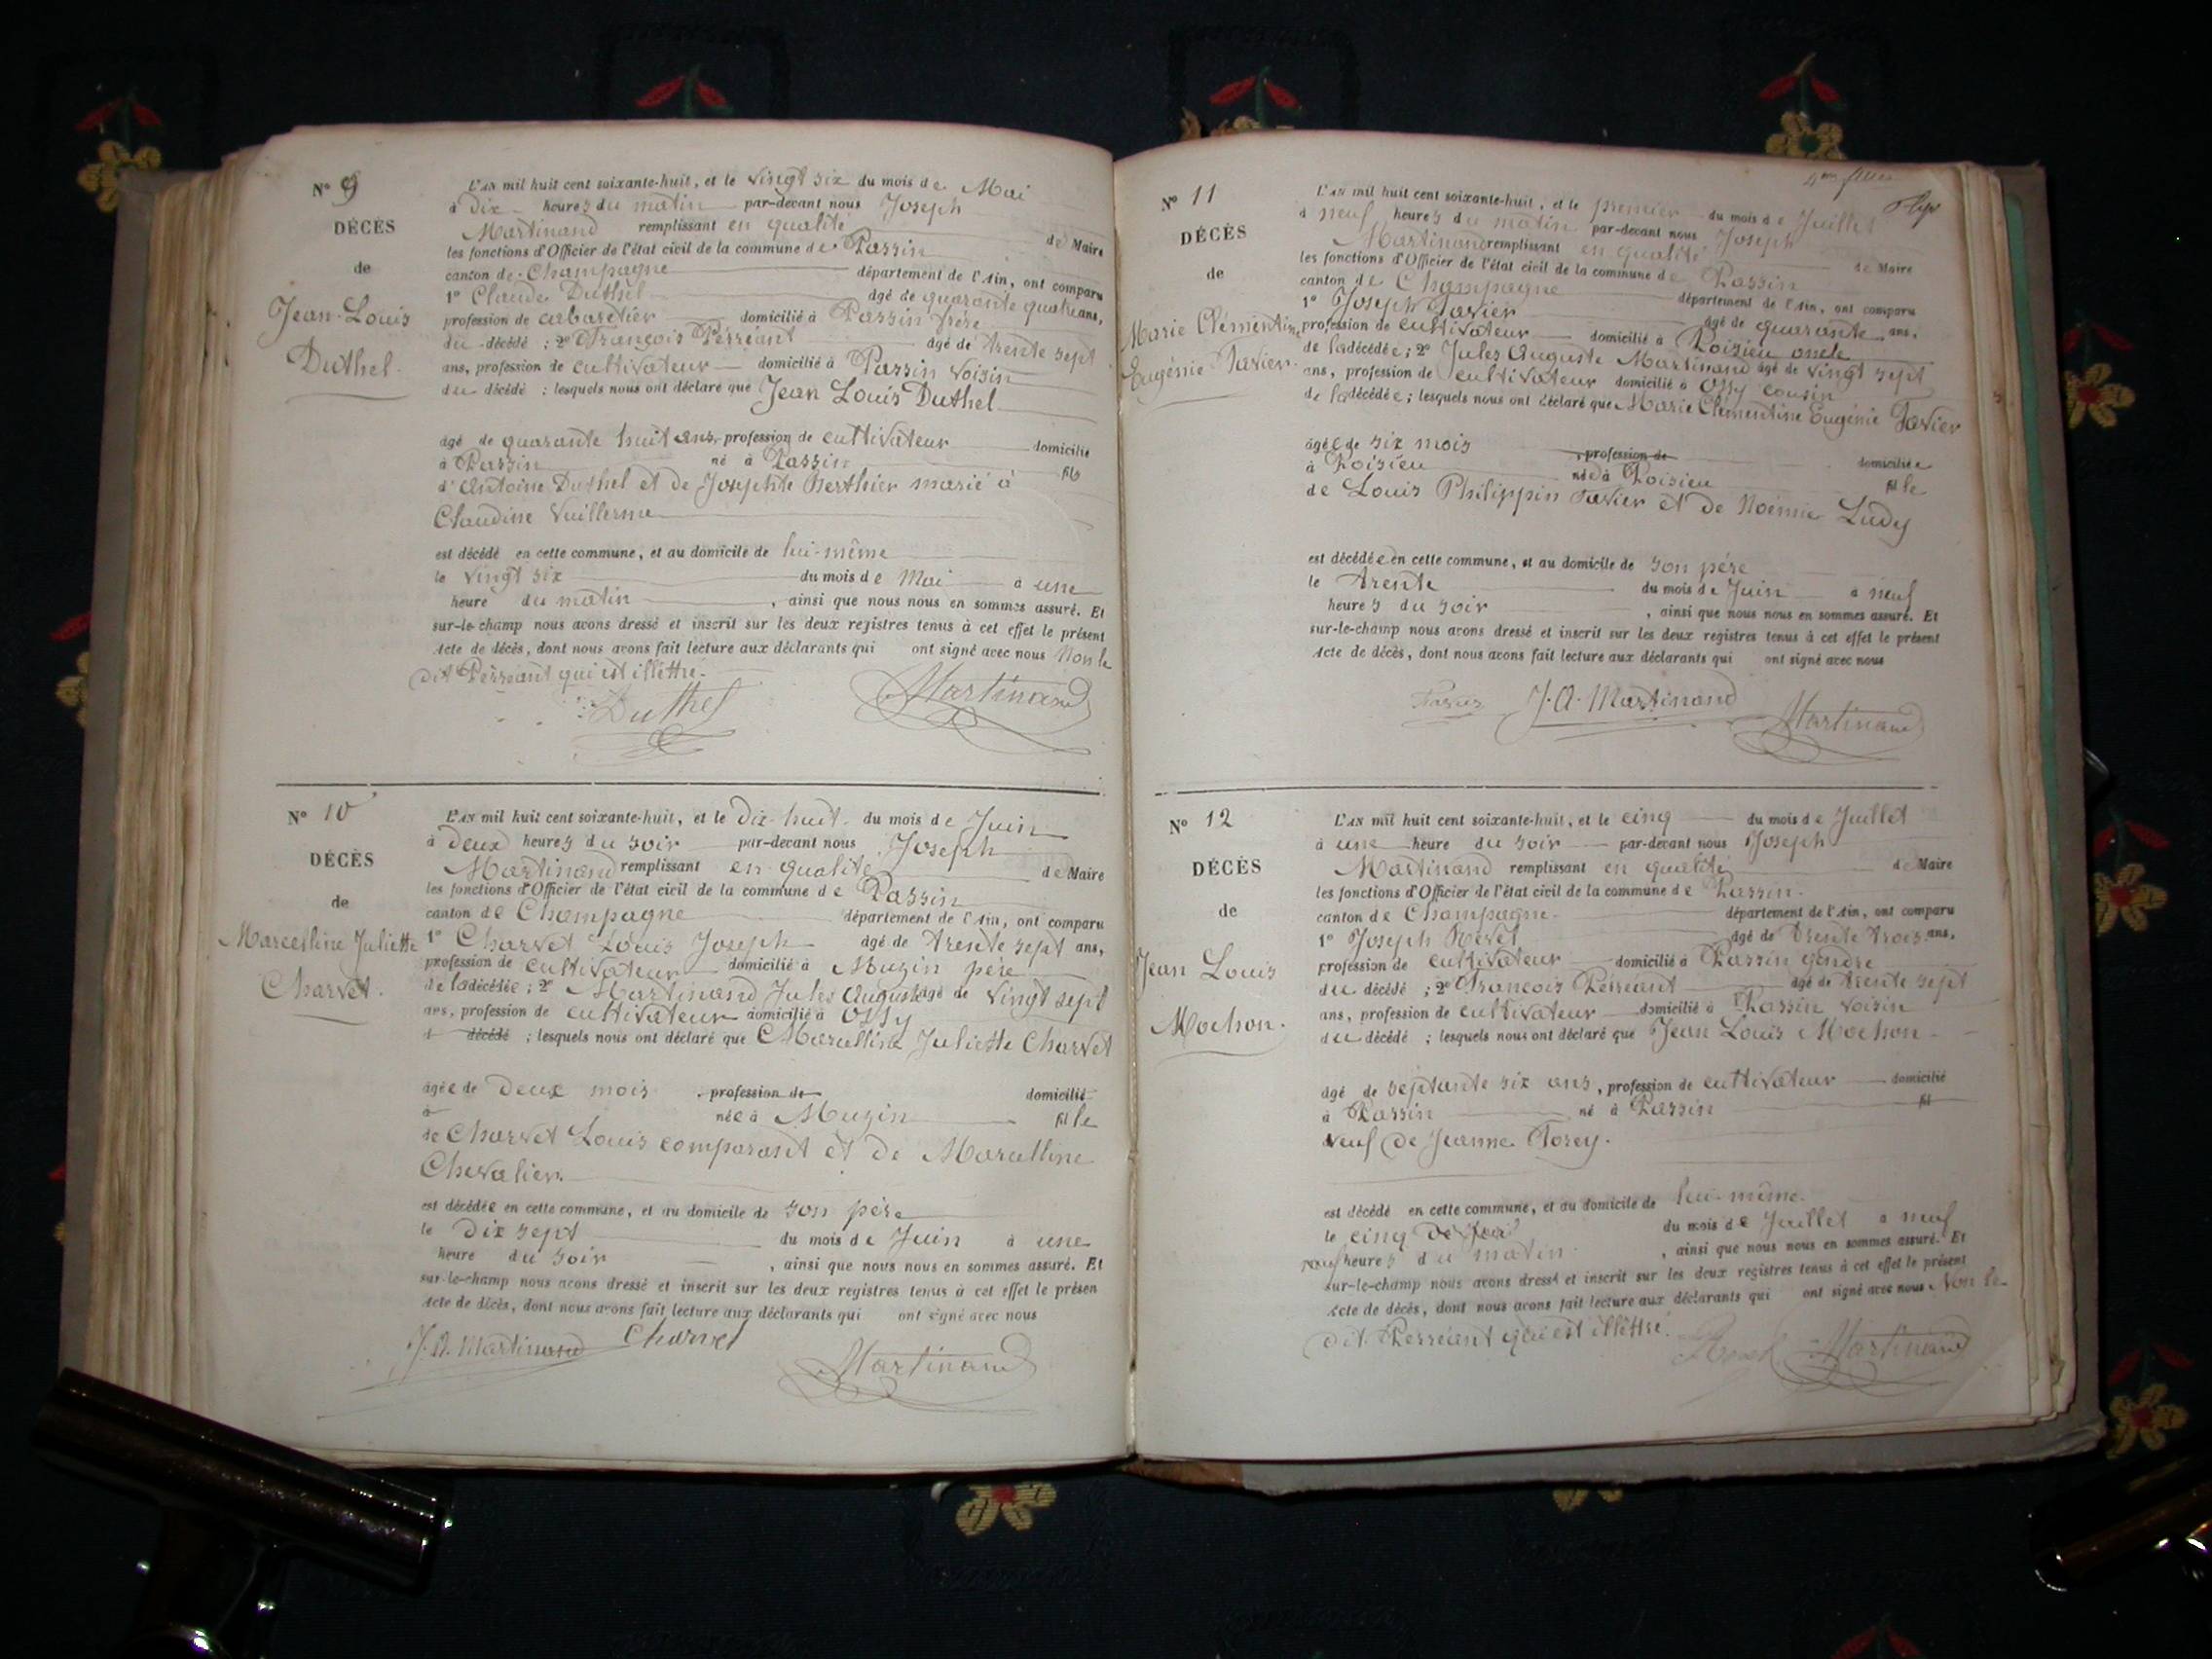 N° 9
DÉCÈS
de
Jean-Louis
Duthel.
L'AN mil huit cent soixante-huit, et le vingt six du mois de Mai
à dix heures du matin par-devant nous Joseph
Martinand remplissant en qualité de Maire
les fonctions d'Officier de l'état civil de la commune de Passin
canton de Champagne département de l'Ain, ont comparu
1° Claude Duthel âgé de quarante quatre ans,
profession de cabaretier domicilié à Passin frère
du décédé ; 2° François Perréant âgé de trente sept
ans, profession de cultivateur domicilié à Passin voisin
du décédé ; lesquels nous ont déclaré que Jean Louis Duthel
âgé de quarante huit ans, profession de cultivateur domicilié
à Passin né à Passin fils
d'Antoine Duthel et de Josephte Berthier marié à
Claudine Vuillerme
est décédé en cette commune, et au domicile de lui-même
le vingt six du mois de Mai à une
heure du matin, ainsi que nous nous en sommes assuré. Et
sur-le-champ nous avons dressé et inscrit sur les deux registres tenus à cet effet le présent
Acte de décès, dont nous avons fait lecture aux déclarants qui ont signé avec nous Non le
dit Perréant qui est illéttré.
Duthel Martinand
N° 10
DÉCÈS
de
Marcelline Juliette
Charvet.
L'AN mil huit cent soixante-huit, et le dix-huit du mois de Juin
à deux heures du soir par-devant nous Joseph
Martinand remplissant en qualité de Maire
les fonctions d'Officier de l'état civil de la commune de Passin
canton de Champagne département de l'Ain, ont comparu
1° Charvet Louis Joseph âgé de trente sept ans,
profession de cultivateur domicilié à Muzin père
de la décédée ; 2° Martinand Jules Auguste âgé de vingt sept
ans, profession de cultivateur domicilié à Ossy
d décédé ; lesquels nous ont déclaré que Marcelline Juliette Charvet
âgée de deux mois, profession de domicilié
à née à Muzin fille
de Charvet Louis comparant et de Marcelline
Chevalier.
est décédée en cette commune, et au domicile de son père
le dix sept du mois de Juin à une
heure du soir, ainsi que nous nous en sommes assuré. Et
sur-le-champ nous avons dressé et inscrit sur les deux registres tenus à cet effet le présen
Acte de décès, dont nous avons fait lecture aux déclarants qui ont signé avec nous
J.A. Martinand Charvet
Martinand
N° 11
DÉCÈS
de
Marie Clémentine
Eugénie Tavier.
L'AN mil huit cent soixante-huit, et le premier du mois de Juillet
à neuf heures du matin par-devant nous Joseph
Martinand remplissant en qualité de Maire
les fonctions d'Officier de l'état civil de la commune de Passin
canton de Champagne département de l'Ain, ont comparu
1° Joseph Tavier âgé de quarante ans,
profession de cultivateur domicilié à Poisieu oncle
de la décédée ; 2° Jules Auguste Martinand âgé de vingt sept
ans, profession de cultivateur domicilié à Ossy cousin
de la décédée ; lesquels nous ont déclaré que Marie Clémentine Eugénie Tavier
âgée de six mois, profession de domiciliée
à Poisieu née à Poisieu fille
de Louis Philippin Tavier et de Noémie Ludy
est décédée en cette commune, et au domicile de son père
le trente du mois de Juin à neuf
heures du soir, ainsi que nous nous en sommes assuré. Et
sur-le-champ nous avons dressé et inscrit sur les deux registres tenus à cet effet le présent
Acte de décès, dont nous avons fait lecture aux déclarants qui ont signé avec nous
J.A. Martinand Martinand
N° 12
DÉCÈS
de
Jean Louis
Mochon.
L'AN mil huit cent soixante-huit, et le cinq du mois de Juillet
à une heure du soir par-devant nous Joseph
Martinand remplissant en qualité de Maire
les fonctions d'Officier de l'état civil de la commune de Passin.
canton de Champagne. département de l'Ain, ont comparu
1° Joseph Revel âgé de trente trois ans,
profession de cultivateur domicilié à Passin gendre
du décédé ; 2° François Perréant âgé de trente sept
ans, profession de cultivateur domicilié à Passin voisin
du décédé ; lesquels nous ont déclaré que Jean Louis Mochon
âgé de septante six ans, profession de cultivateur domicilié
à Passin né à Passin fil
veuf de Jeanne Torey.
est décédé en cette commune, et au domicile de lui-même.
le cinq du mois de Juillet à neuf
heures du matin, ainsi que nous nous en sommes assuré. Et
sur-le-champ nous avons dressé et inscrit sur les deux registres tenus à cet effet le présent
Acte de décès, dont nous avons fait lecture aux déclarants qui ont signé avec nous Non le
dit Perréant qui est illéttré.
Martinand